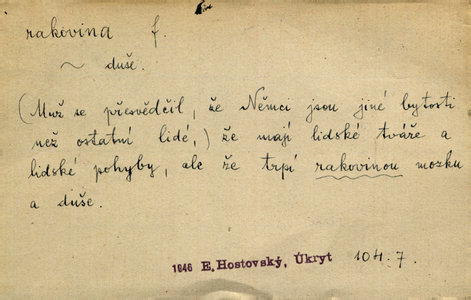 rakovina f.
~ duše.
(Muž se přesvědčil, že Němci jsou jiné bytosti
než ostatní lidé,) že mají lidské tváře a
lidské pohyby, ale že trpí rakovinou mozku
a duše.
1946 E. Hostovský, Úkryt 104.7.